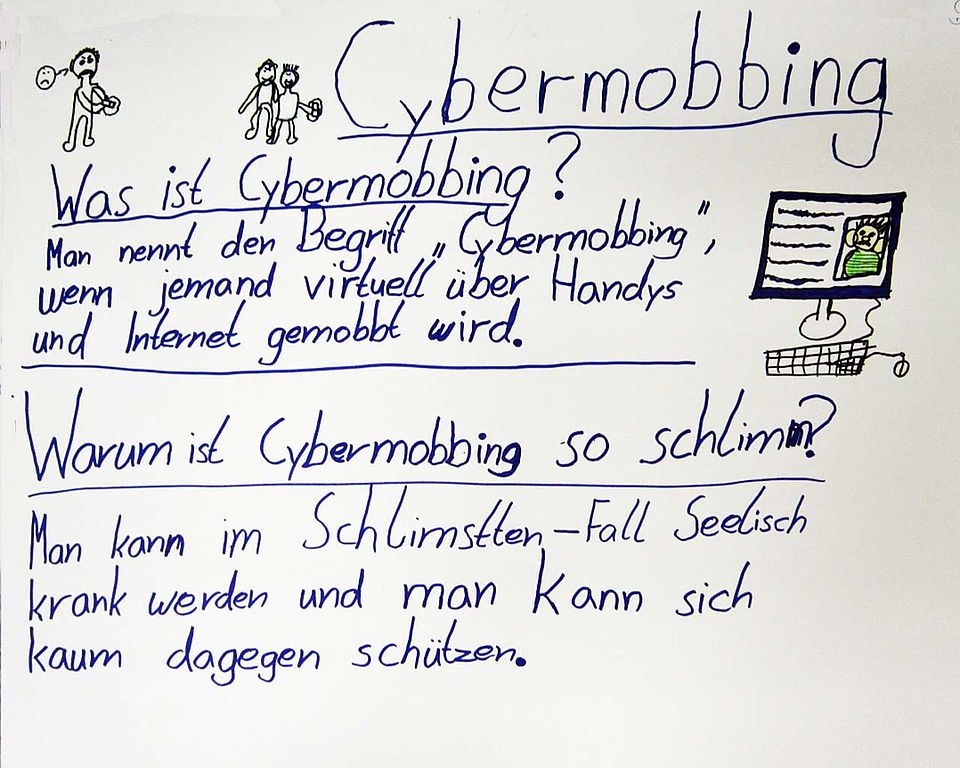 Cybermobbing
Was ist Cybermobbing?
Man nennt den Begriff „Cybermobbing",
wenn jemand virtuell über Handys
und Internet gemobbt wird.
Warum ist Cybermobbing so schlimm?
Man kann im Schlimstten-Fall Seelisch
krank werden und man kann sich
kaum dagegen schützen.